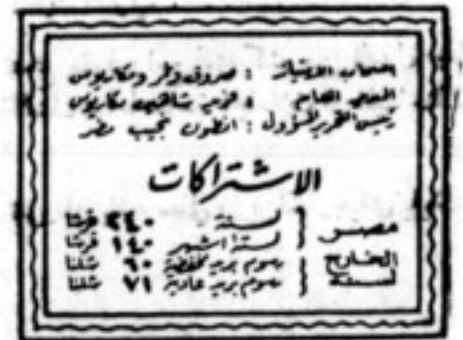 اصحاب الامتياز : صروف ونمر ومكاريوس
المدير العام : فؤاد شاهين مكاريوس
رئيس التحرير المسؤول : انطون نجيب مطر
الاشتراكات
مصر { لسنة ٢٤٠ قرشا
لستة اشهر ١٤٠ قرشا
الخارج لسنة { رسوم بريد مخفضة ٦٠ شلنا
رسوم بريد عادية ٧١ شلنا